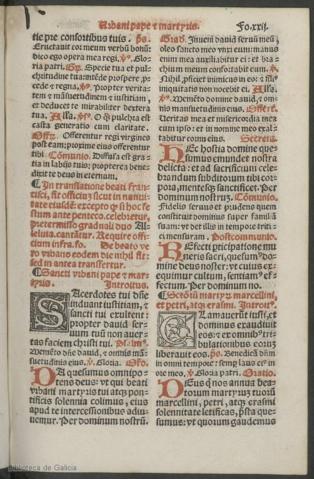 Urbani pape et martyris. Fo.xxij.
tie pre consortibus tuis. ps.
Eructauit cor meum verbū bonū:
dico ego opera mea regi. Glo-
ria patri. Specie tua et pul-
chitudine tua: intēde prospere, p-
cede et regna. propter verita-
tem et māsuetudinem et iustitiam,
et deducet te mirabiliter dextera
tua. Alla. O q̄ pulchra est
casta generatio cum claritate.
Offerentur regi virgines
post eam: proxime eius offerentur
tibi Cōmunio. Diffusa est gra-
tia in labijs tuis; propterea bene-
dixit te deus in eternum.
In translatione beati fran-
cisci, fit officiū sicut in natiui-
tate
Sancti vrbani pape et mar-
tyris. Introitus.
Sacerdotes tui dn̄e
induant iustitiam, et
sancti tui exultent:
propter dauid ser-
uum tuū non auer-
tas faciem christi tui.
Memēto dn̄e dauid, et omnis mā-
suetudinis eius. Gloria.
DA quesumus omnipo-
tens deus: vt qui beati
vrbani martyris tui atq; pon-
tificis solennia colimus, eius
apud te intercessionibus adiu-
uemur. Per dominum nostrū
Grad. Inueni dauid seruū meū,
oleo sancto meo vnxi eum: manus
enim mea auxiliabitur ei: et bra-
chium meum confortabit eum.
Nihil pficiet inimicus in eo: et filius
iniquitatis non nocebit ei. Alla.
Memēto domine dauid, et om-
nis mansuetudinis eius. Offertē.
Ueritas mea et misericordia mea
cum ipso: et in nomine meo exal-
tabitur cornu eius. Secreta.
HEc hostia domine que-
sumus emundet nostra
delicta: et ad sacrificium cele-
brandum subditorum tibi cor-
pora, mentesq; sanctificet. Per
dominum nostrum. Cōmunio.
Fidelis seruus et prudens quem
constituit dominus super famili-
am suam: vt det illis in tempore triti-
ci mensuram. Postcommunio.
REfecti pticipatione mu-
neris sacri, quesum9 do-
mine deus noster: vt cuius ex-
equimur cultum, sentiam9 ef-
fectum. Per dominum no.
Sctōrū martyrū marcellini,
et petri, atq; erasmi. Introit9.
CLamauerūt iusti, et
dominus exaudiuit
eos: et ex omnib9 tri-
bulationibus eorum
liberauit eos. ps. Benedicā dn̄m
in omni tempore: semp laus ei9 in
ore meo. Gloria patri. Oratio.
DEus q̄ nos annua bea-
torum martyrum tuorum
marcellini, petri, atq; erasmi
solennitate letificas, psta que-
sumus: vt quorum gaudemus
Biblioteca de Galicia